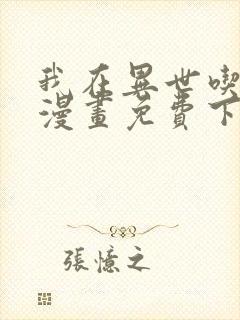 我在異世喫
漫畫免費下
張憶之